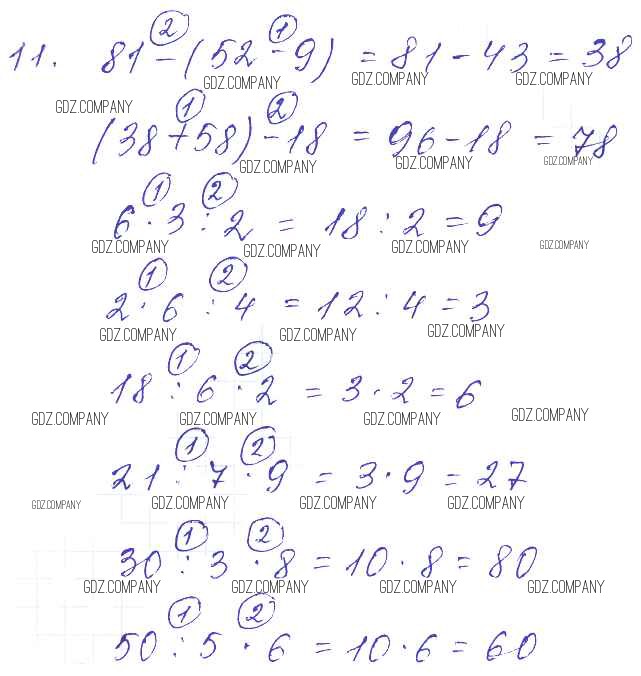 ② ①
11. 81 - (52 - 9) = 81 - 43 = 38
GDZ.COMPANY GDZ.COMPANY GDZ.COMPANY GDZ.COMPANY
① ②
(38 + 58) - 18 = 96 - 18 = 78
GDZ.COMPANY GDZ.COMPANY GDZ.COMPANY
① ②
6 · 3 : 2 = 18 : 2 = 9
GDZ.COMPANY GDZ.COMPANY GDZ.COMPANY GDZ.COMPANY
① ②
2 · 6 : 4 = 12 : 4 = 3
GDZ.COMPANY GDZ.COMPANY GDZ.COMPANY
① ②
18 : 6 · 2 = 3 · 2 = 6
GDZ.COMPANY GDZ.COMPANY GDZ.COMPANY GDZ.COMPANY
① ②
21 : 7 · 9 = 3 · 9 = 27
GDZ.COMPANY GDZ.COMPANY GDZ.COMPANY GDZ.COMPANY
① ②
30 : 3 · 8 = 10 · 8 = 80
GDZ.COMPANY GDZ.COMPANY GDZ.COMPANY GDZ.COMPANY
① ②
50 : 5 · 6 = 10 · 6 = 60